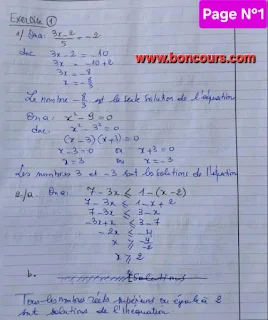 Page N°1
Exercice ①
1/ Ona: 3x-2/5 = -2
www.boncours.com
donc 3x-2 = -10
3x = -10+2
3x = -8
x = -8/3
Le nombre -8/3 est la seule solution de l'équation
Ona: x² - 9 = 0
donc x² - 3² = 0
(x-3)(x+3) = 0
x-3 = 0 ou x+3 = 0
x = 3 ou x = -3
Les nombres 3 et -3 sont les solutions de l'équation
2/a Ona: 7-3x ≤ 1-(x-2)
7-3x ≤ 1-x+2
7-3x ≤ 3-x
-3x+x ≤ 3-7
-2x ≤ -4
x ≥ -4/-2
x ≥ 2
b. Solutions
Tous les nombres réels supérieurs ou égale à 2
sont solutions de l'inéquation